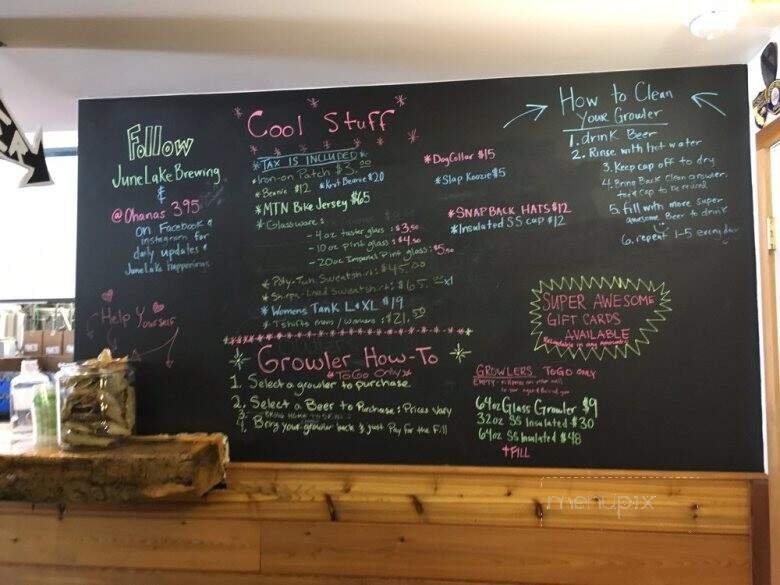 Follow
JuneLakeBrewing
&
@Ohanas 395
on Facebook &
instagram for
daily updates &
JuneLake happenings
Help Yourself
Cool Stuff
*TAX IS INCLUDED*
*Iron-on Patch $3.00
*Beanie $12 *Knit Beanie $20
*MTN Bike Jersey $65
*Glassware:
-4oz taster glass: $3.50
-10oz Pint glass: $4.50
-20oz Imperial Pint glass: $5.50
Sweatshirt: $45.00
Lined Sweatshirt: $65.00
*Womens Tank L&XL $19
*Tshirts mens/womens: $21.50
*Dog Collar $15
*Slap Koozie $5
*SNAPBACK HATS $12
*Insulated SS cup $12
How to Clean
your Growler
1. drink Beer
2. Rinse with hot water
3. Keep cap off to dry
4. Bring Back Clean growler
cap to be reused
5. fill with more super
awesome Beer to drink
6. repeat 1-5 everyday
SUPER AWESOME
GIFT CARDS
AVAILABLE
Growler How-To
*ToGo Only*
1. Select a growler to purchase
2. Select a Beer to Purchase: Prices vary
3.
4. Bring your growler back & just Pay for the Fill
GROWLERS TOGO ONLY
64oz Glass Growler $9
32oz SS Insulated $30
64oz SS Insulated $48
+FILL
menupix